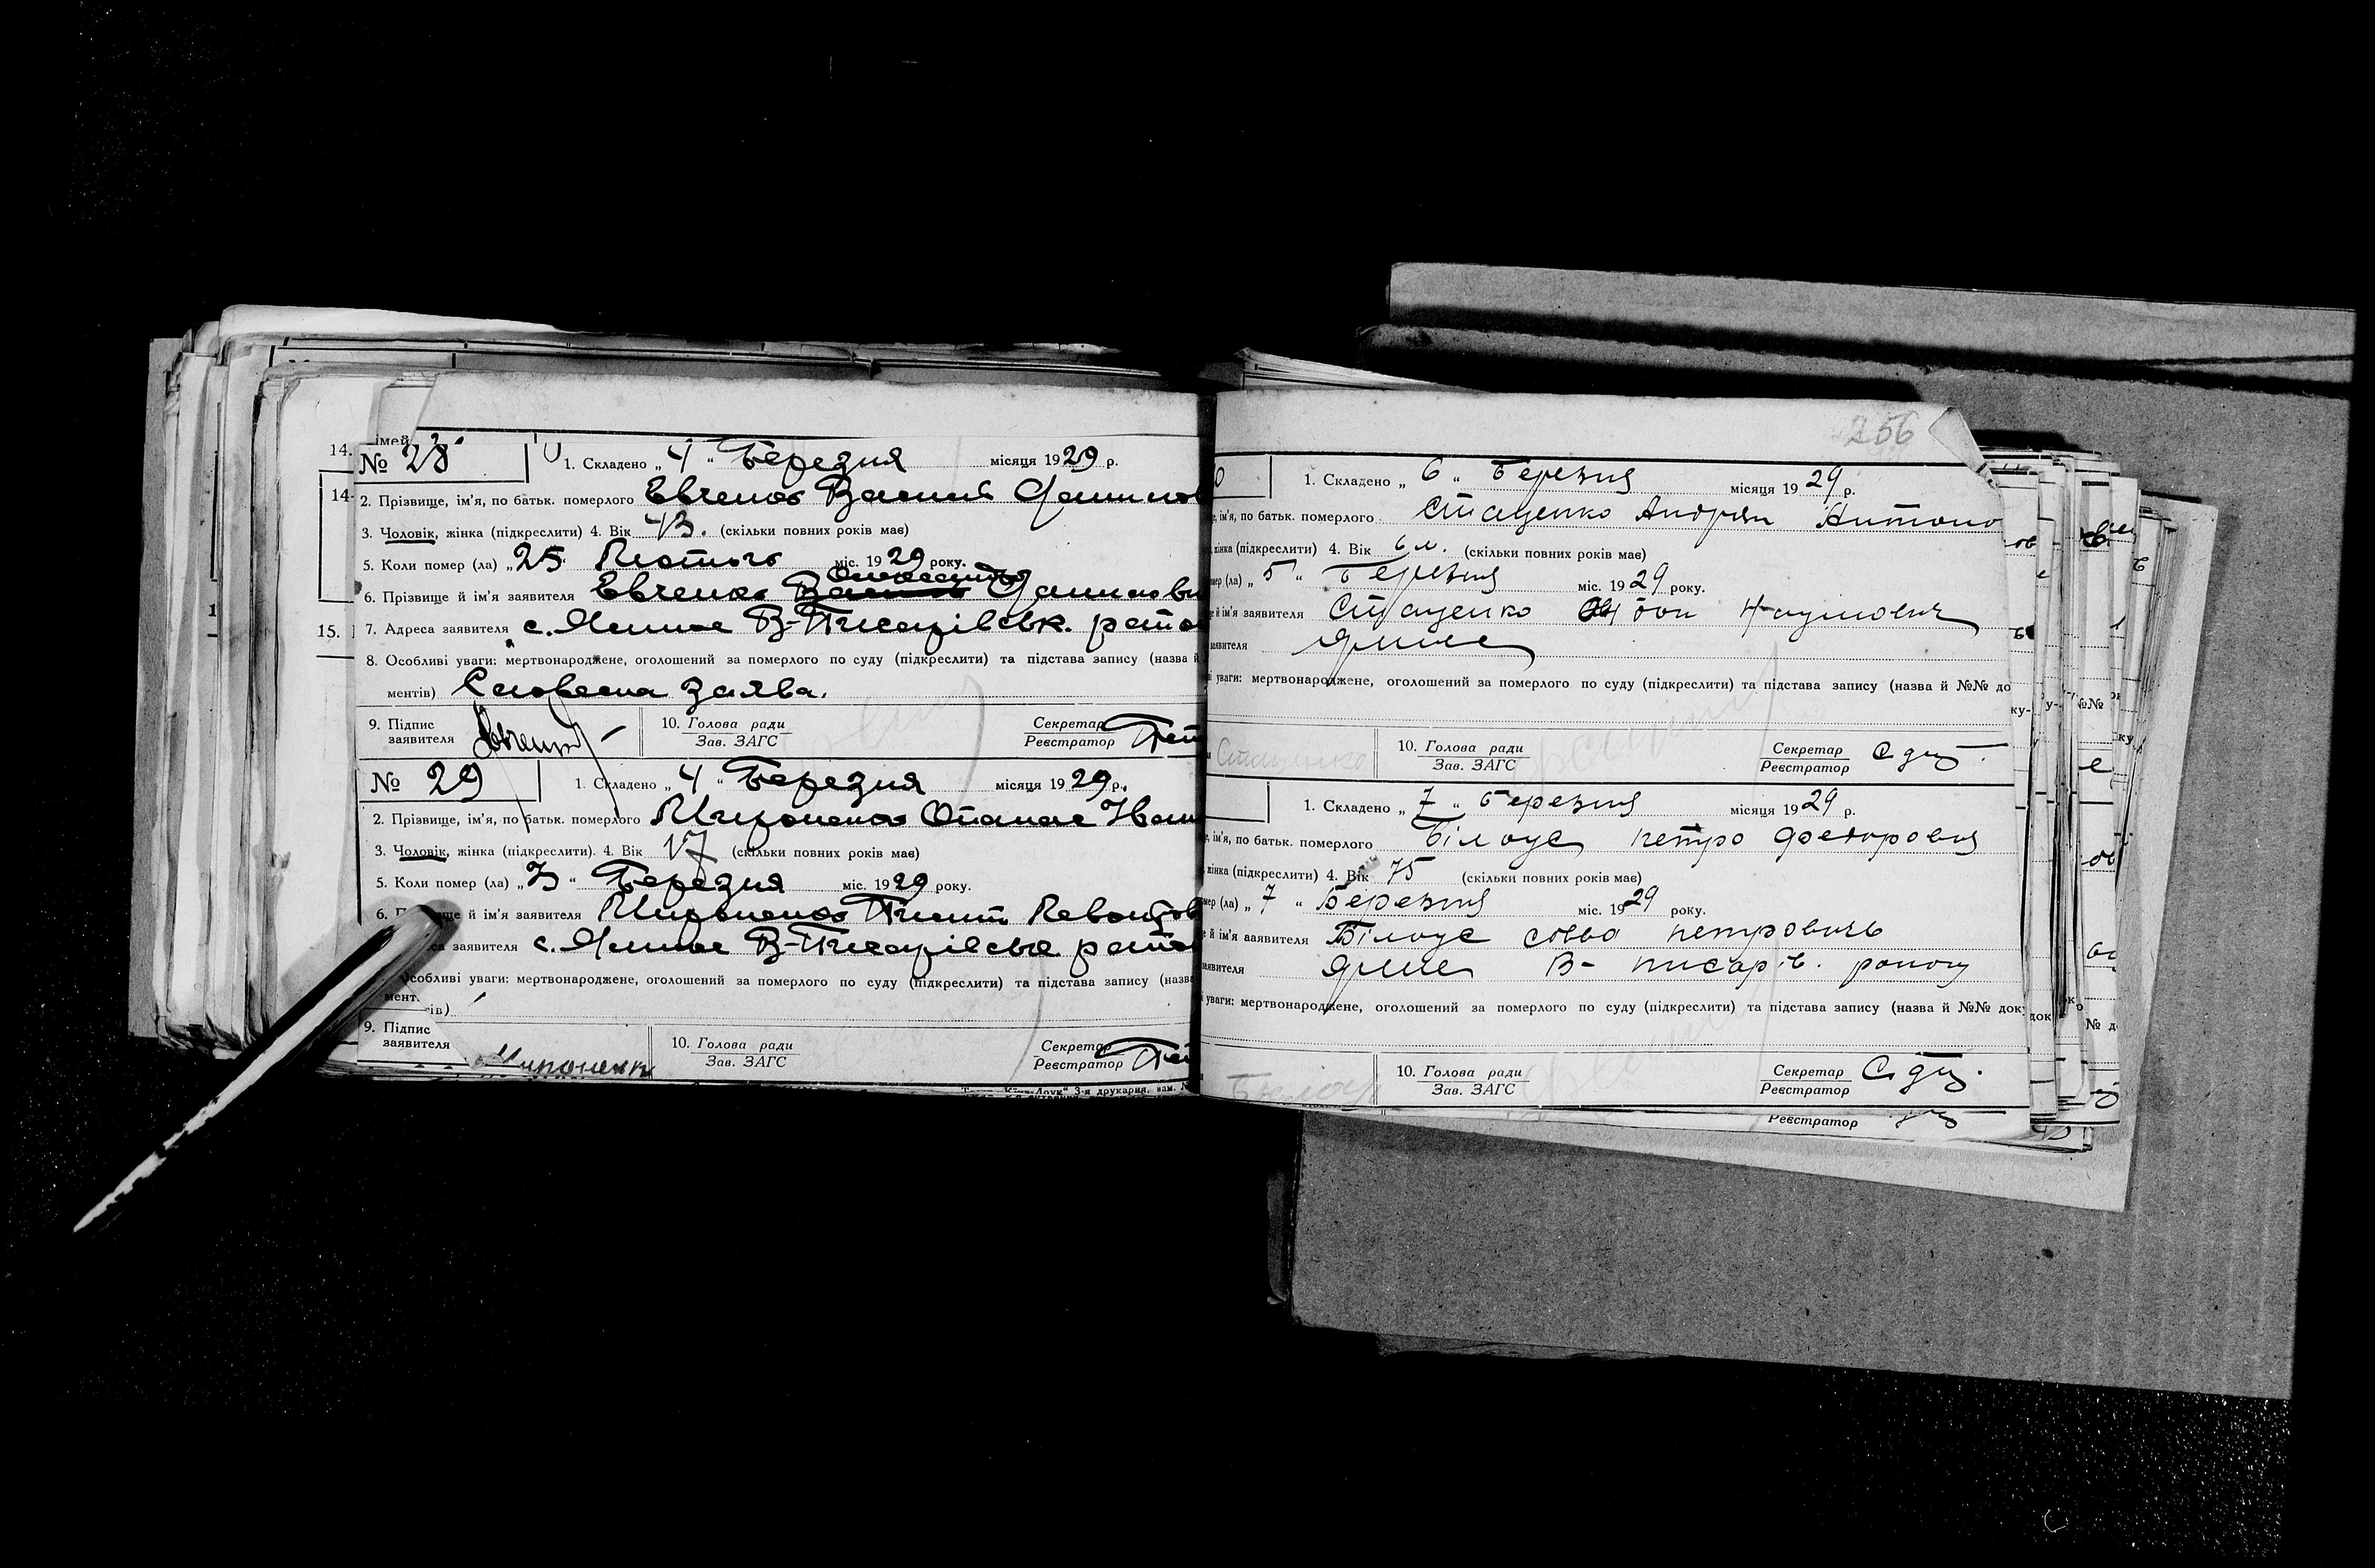 14. імей
№ 28 1. Складено „ 4 “ Березня місяця 1929 р.
14
2. Прізвище, ім'я, по батьк. померлого Євченко Василь Данилов
3. Чоловік, жінка (підкреслити) 4. Вік (скільки повних років має)
5. Коли помер (ла) „ 25 Лютого міс. 1929 року.
6. Прізвище й ім'я заявителя Євченко Василь Данилови
15. 7. Адреса заявителя с. Ямне В-Писарівськ. рано
8. Особливі уваги: мертвонароджене, оголошений за померлого по суду (підкреслити) та підстава запису (назва й
ментів) Словесна заява.
9. Підпис заявителя 10. Голова ради Зав. ЗАГС Секретар Реєстратор
№ 29 1. Складено „ 4 “ Березня місяця 1929 р.
2. Прізвище, ім'я, по батьк. померлого Мироненко Опанас Іван
3. Чоловік, жінка (підкреслити). 4. Вік (скільки повних років має)
5. Коли помер (ла) „ 3 “ Березня міс. 1929 року.
6. й ім'я заявителя Мироненко
заявителя с. Ямне В-Писарівське
Особливі уваги: мертвонароджене, оголошений за померлого по суду (підкреслити) та підстава запису (назва
мент.
ів)
9. Підпис заявителя Мироненк 10. Голова ради Зав. ЗАГС Секретар Реєстратор
3-я друкарня, зам. №
256
0 1. Складено „ 6 “ Березня місяця 1929 р.
ім'я, по батьк. померлого Стаценко Андріян Антоно
жінка (підкреслити) 4. Вік 6 м. (скільки повних років має)
мер (ла) „ 5 “ Березня міс. 1929 року.
й ім'я заявителя Стаценко Наумович
заявителя Ямне
уваги: мертвонароджене, оголошений за померлого по суду (підкреслити) та підстава запису (назва й №№ до
Стаценко 10. Голова ради Зав. ЗАГС Секретар Реєстратор
1. Складено „ 7 “ Березня місяця 1929 р.
ім'я, по батьк. померлого Білоус петро Федорович
жінка (підкреслити) 4. Вік 75 (скільки повних років має)
мер (ла) „ 7 “ Березня міс. 1929 року.
й ім'я заявителя Білоус Савва петровичь
заявителя Ямне В- писарів. району
уваги: мертвонароджене, оголошений за померлого по суду (підкреслити) та підстава запису (назва й №№ док
10. Голова ради Зав. ЗАГС Секретар Реєстратор
Реєстратор